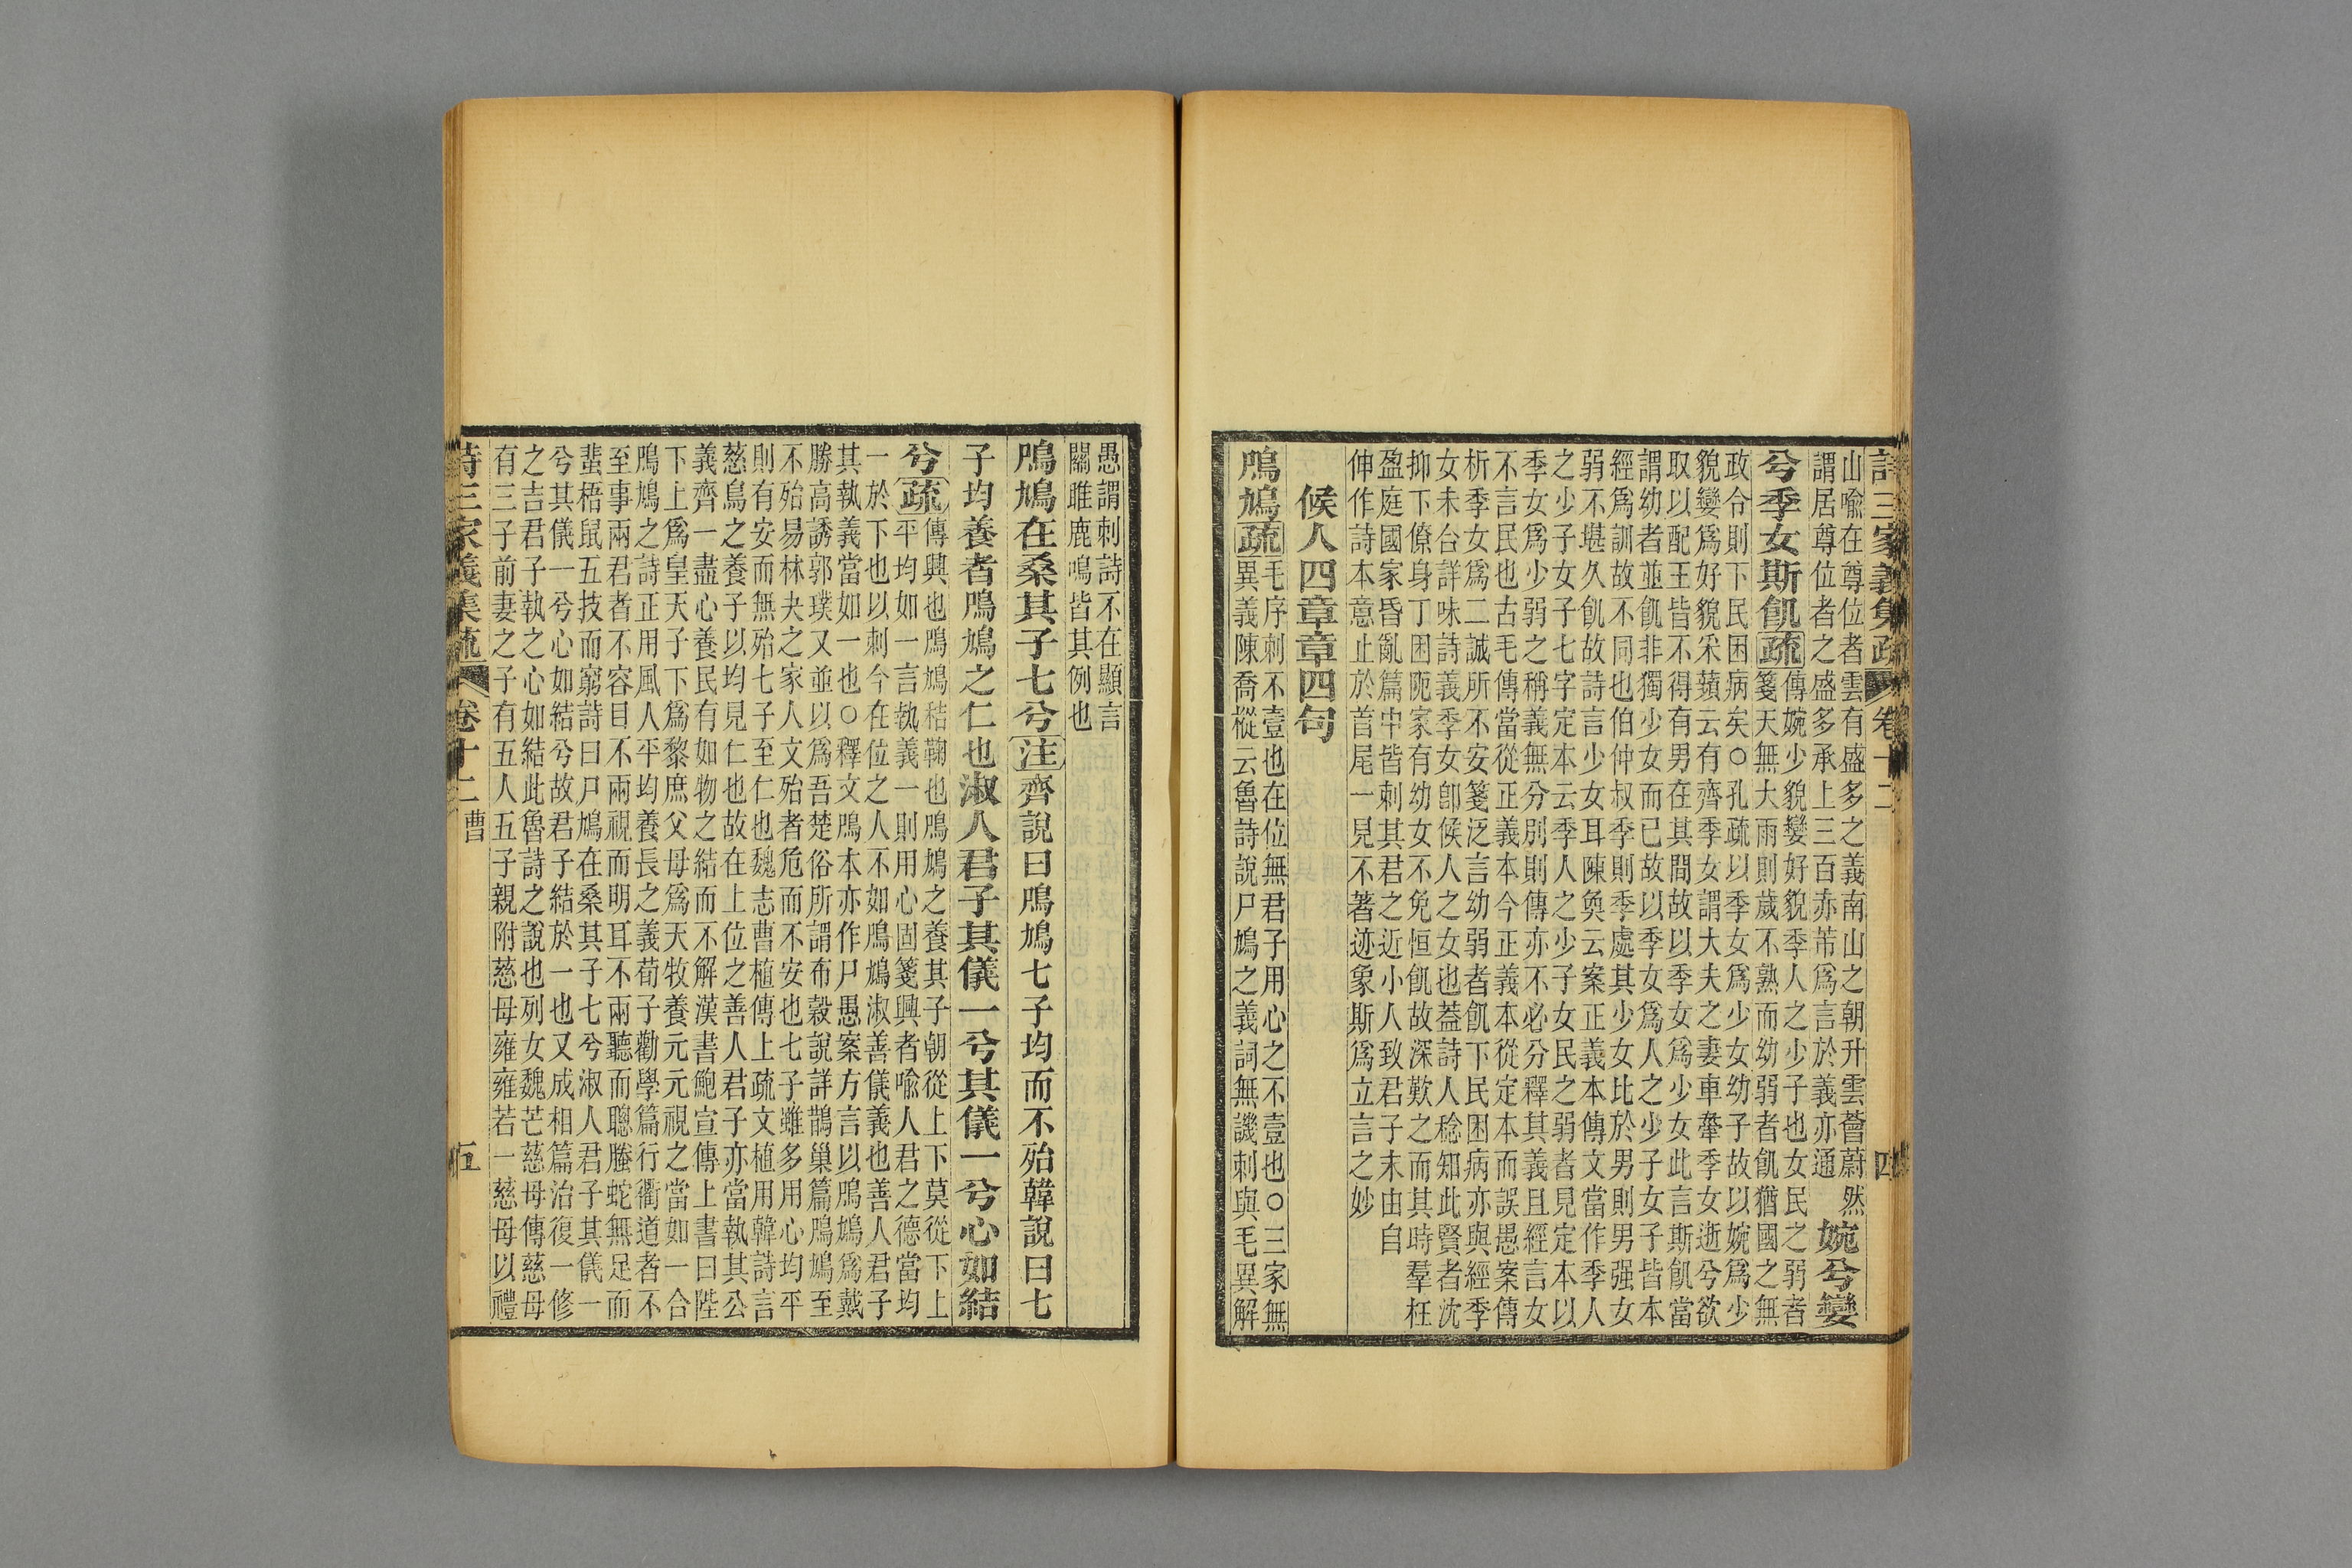 詩三家義集疏 卷十二 四
山喻在尊位者雲有盛多之義南山之朝升雲薈蔚然
謂居尊位者之盛多承上三百赤芾爲言於義亦通
婉兮孌
兮季女斯飢疏
傳婉少貌孌好貌季人之少子也女民之弱者
箋天無大雨則歲不熟而幼弱者飢猶國之無
政令則下民困病矣○孔疏以季女爲少女幼子故以婉爲少
貌孌爲好貌采蘋云有齊季女謂大夫之妻車舝季女逝兮欲
取以配王皆不得有男在其間故以季女爲少女此言斯飢當
謂幼者並飢非獨少女而已故以季女爲人之少子女子皆本
經爲訓故不同也伯仲叔季則季處其少女比於男則男强女
弱不堪久飢故詩言少女耳陳奐云案正義本傳文當作季人
之少子女子七字定本云季人之少子女民之弱者見定本以
季女爲少弱之稱義無分別則傳亦不必分釋其義且經言女
不言民也古毛傳當從正義本今正義本從定本而誤愚案傳
析季女爲二誠所不安箋泛言幼弱者飢下民困病亦與經季
女未台詳味詩義季女卽候人之女也葢詩人稔知此賢者沈
抑下僚身丁困阨家有幼女不免恒飢故深歎之而其時羣枉
盈庭國家昏亂篇中皆刺其君之近小人致君子未由自
伸作詩本意止於首尾一見不著迹象斯爲立言之妙
候人四章章四句
鳲鳩疏
毛序刺不壹也在位無君子用心之不壹也○三家無
異義陳喬樅云魯詩說尸鳩之義詞無譏刺與毛異解
愚謂刺詩不在顯言
關雎鹿鳴皆其例也
鳲鳩在桑其子七兮注齊說曰鳲鳩七子均而不殆韓說曰七
子均養者鳲鳩之仁也淑人君子其儀一兮其儀一兮心如結
兮疏
傳興也鳲鳩秸鞠也鳲鳩之養其子朝從上下莫從下上
平均如一言執義一則用心固箋興者喻人君之德當均
一於下也以刺今在位之人不如鳲鳩淑善儀義也善人君子
其執義當如一也○釋文鳲本亦作尸愚案方言以鳲鳩爲戴
勝高誘郭璞又並以爲吾楚俗所謂布穀說詳鵲巢篇鳲鳩至
不殆易林夬之家人文殆者危而不安也七子雖多用心均平
則有安而無殆七子至仁也魏志曹植傳上疏文植用韓詩言
慈鳥之養子以均見仁也故在上位之善人君子亦當執其公
義齊一盡心養民有如物之結而不解漢書鮑宣傳上書曰陛
下上爲皇天子下爲黎庶父母爲天牧養元元視之當如一合
鳲鳩之詩正用風人平均養長之義荀子勸學篇行衢道者不
至事兩君者不容目不兩視而明耳不兩聽而聰螣蛇無足而
蜚梧鼠五技而窮詩曰尸鳩在桑其子七兮淑人君子其儀一
兮其儀一兮心如結兮故君子結於一也又成相篇治復一修
之吉君子執之心如結此魯詩之說也列女魏芒慈母傳慈母
有三子前妻之子有五人五子親附慈母雍雍若一慈母以禮
詩三家義集疏 卷十二 曹 五